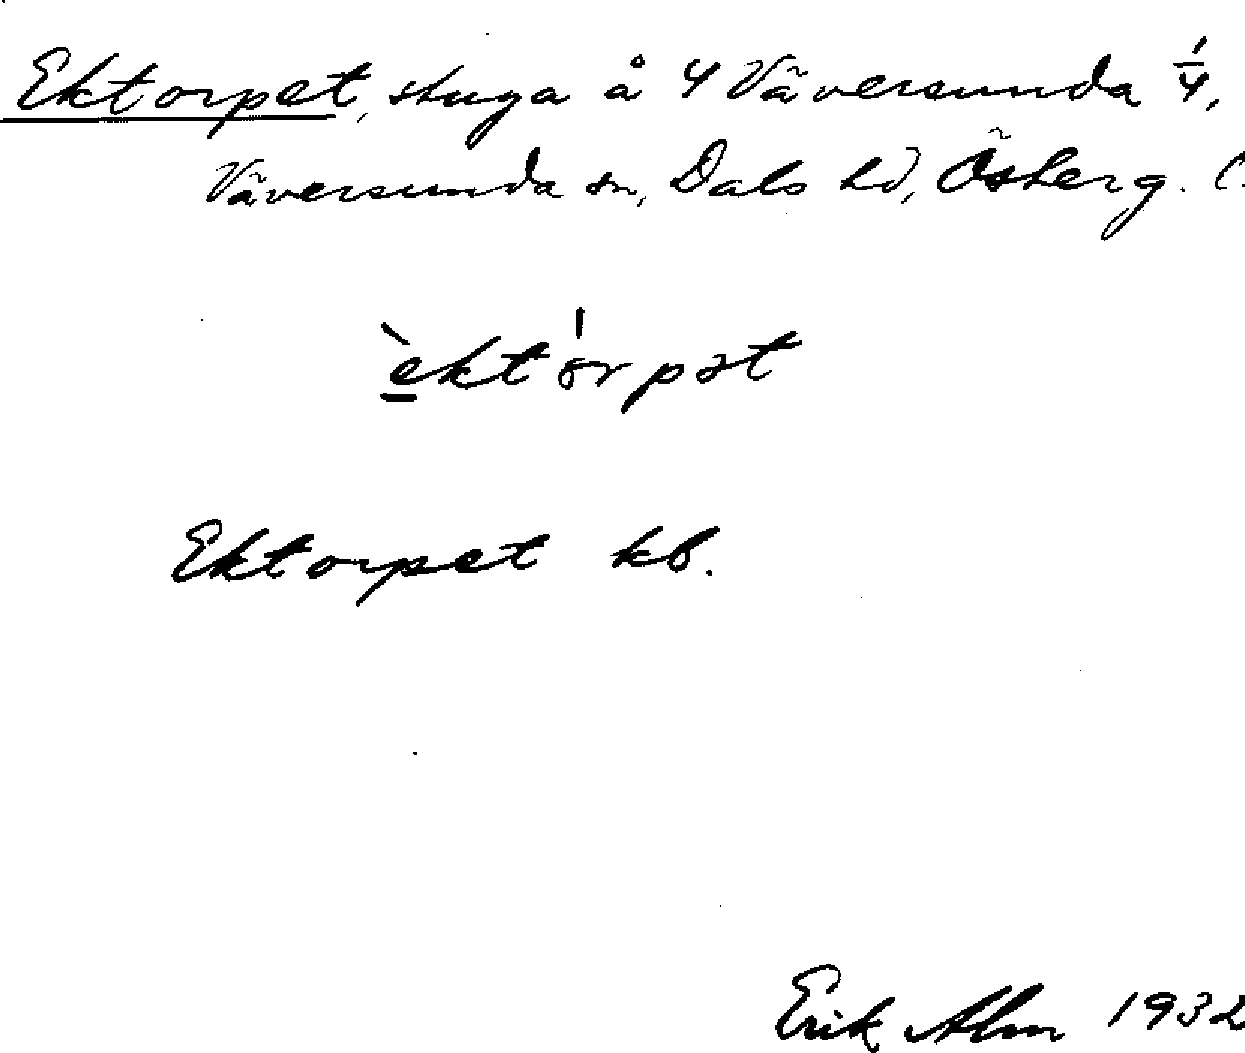 Ektorpet, stuga å 4 Väversunda 1/4,
Väversunda sn, Dals hd, Österg. l.
èktórpət
Ektorpet kb.
Erik Alm 1932